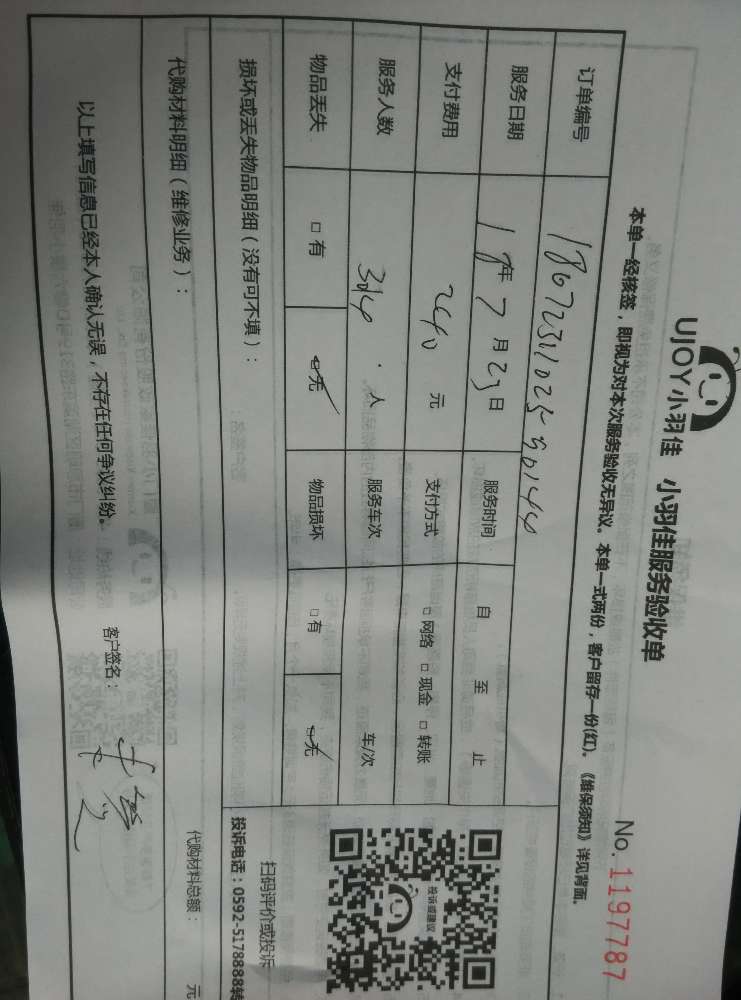 UJOY小羽佳 小羽佳服务验收单
No. 1197787
本单一经核签，即视为对本次服务验收无异议。本单一式两份，客户留存一份(红)。《维保须知》详见背面。
订单编号
服务日期 18年 7月 23日 服务时间: 自 至 止
支付费用 240 元 支付方式 □ 网络 □ 现金 □ 转账
服务人数 人 服务车次 车/次
物品丢失 □ 有 □ 无 物品损坏 □ 有 □ 无
损坏或丢失物品明细（没有可不填）：
投诉或建议
扫码评价或投诉
投诉电话：0592-5178888转
代购材料明细（维修业务）：
代购材料总额： 元
以上填写信息已经本人确认无误，不存在任何争议纠纷。 客户签名：